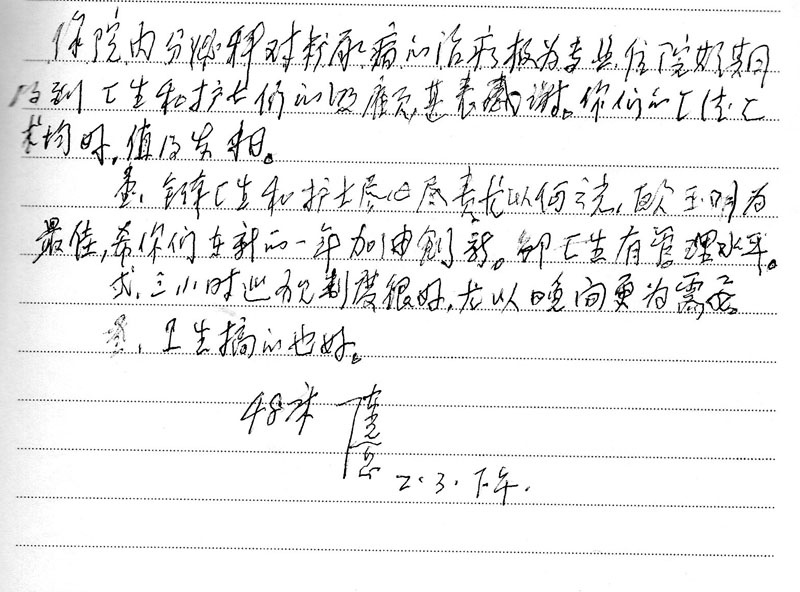 你院内分泌科对糖尿病的治疗极为专业,住院期间
得到医生和护士们的照顾,甚表感谢。你们的医德医
术均好,值得发扬。
壹、全体医生和护士尽心尽责尤以何主任,欧玉明为
最佳,希你们在新的一年加油创新。邹医生有管理水平。
贰、三小时巡视制度很好,尤以晚间更为需要。
叁、卫生搞的也好。
48床 陆
2.3.下午.